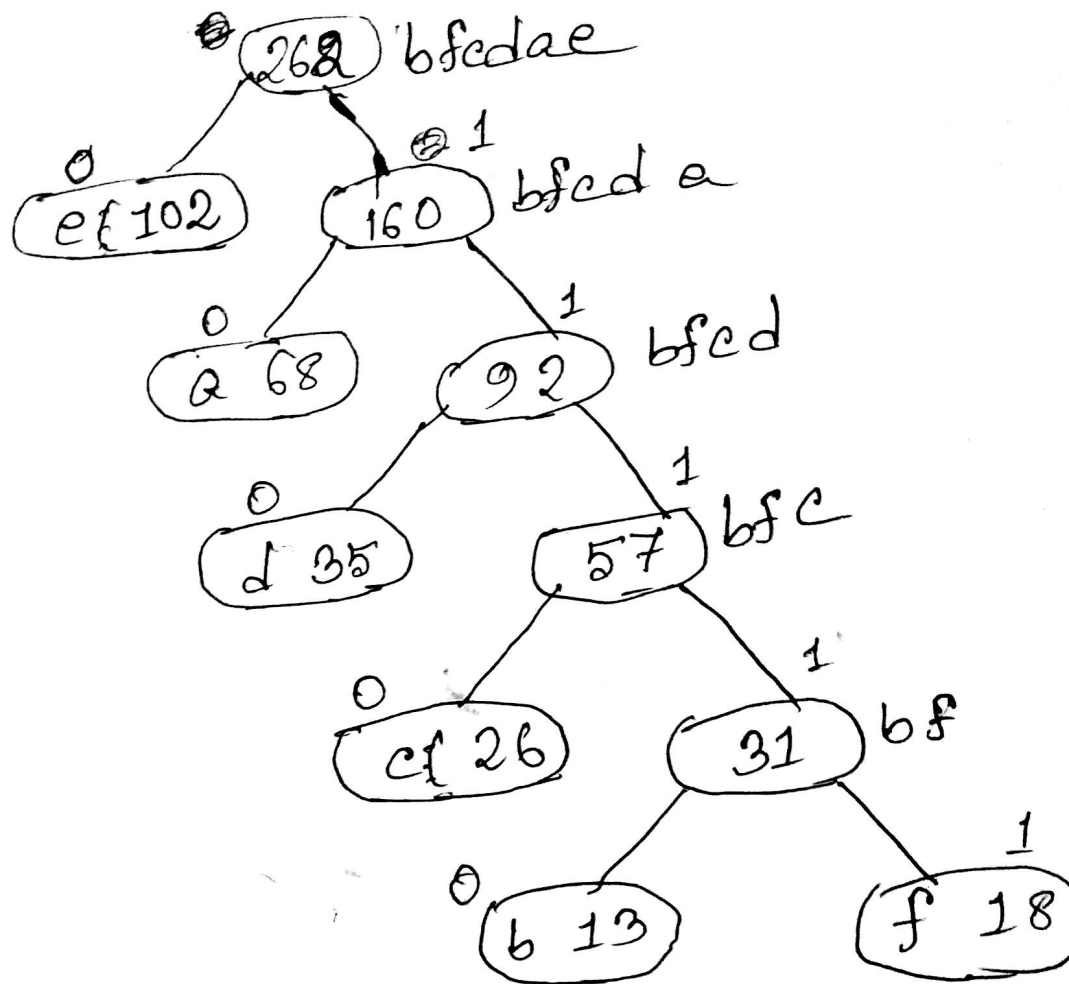 262 bfcdae
0 1
e{ 102 160 bfcda
0 1
a 68 92 bfcd
0 1
d 35 57 bfc
0 1
c{ 26 31 bf
0 1
b 13 f 18